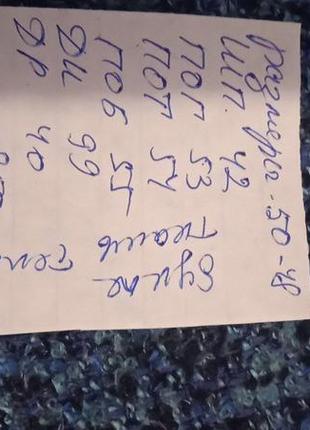 размеры. 50-48
шп. 42
ПОП 53
ПОТ 54
ПОБ 55
ДИ 99
ДР 40
ткань